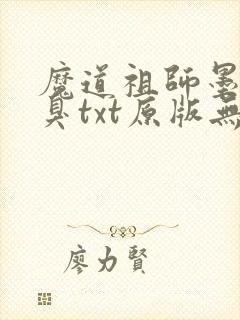 魔道祖師墨
臭txt原版無
廖力賢